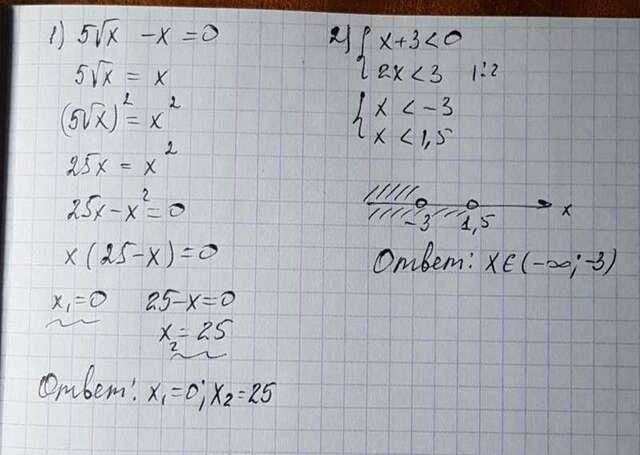 1) 5√x - x = 0
5√x = x
(5√x)² = x²
25x = x²
25x - x² = 0
x(25-x) = 0
x₁=0 25-x=0
x₂=25
Ответ: x₁=0; x₂=25
2) { x+3<0
2x<3 |:2
{ x < -3
x < 1,5
-3 1,5 x
Ответ: x∈(-∞; -3)